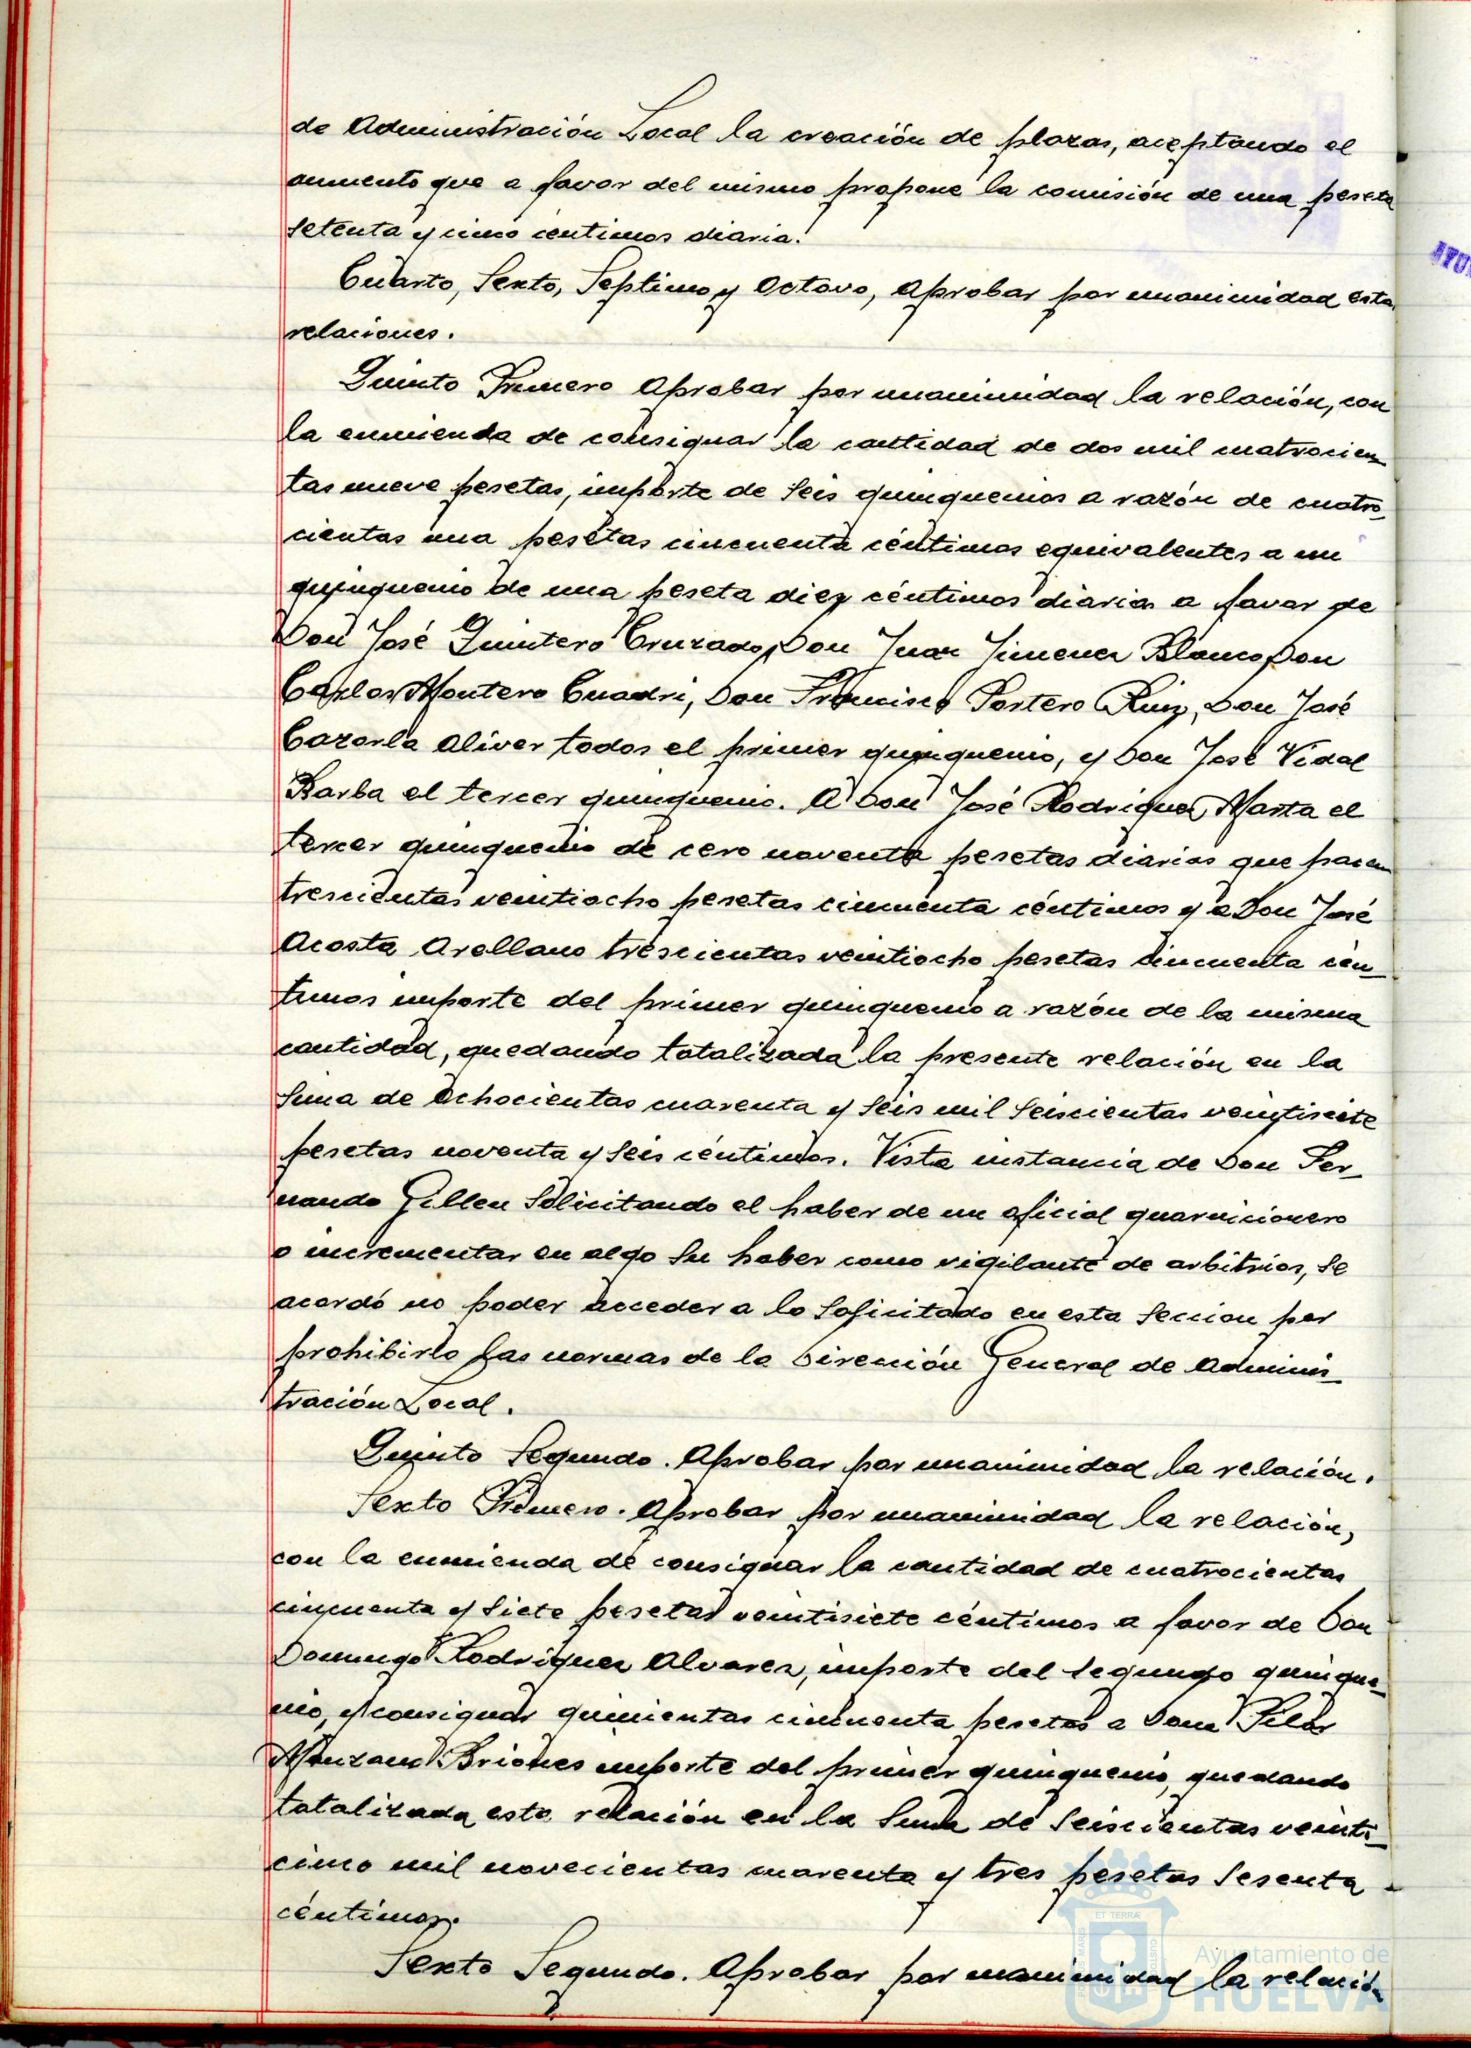 de Administración Local la creación de plazas, aceptando el
aumento que a favor del mismo propone la comisión de una peseta
setenta y cinco céntimos diaria.
Cuarto, Sexto, Septimo y Octavo, Aprobar por unanimidad esta
relaciones.
Quinto Primero Aprobar por unanimidad la relación, con
la enmienda de consignar la cantidad de dos mil cuatrocien_
tas nueve pesetas, importe de seis quinquenios a razón de cuatro_
cientas una pesetas cincuenta céntimos equivalentes a un
quinquenio de una peseta diez céntimos diarios a favor de
Don José Quintero Cruzado, Don Juan Jimenez Blanco, Don
Carlos Montero Cuadri, Don Francisco Portero Ruiz, Don José
Cazorla Oliver todos el primer quinquenio, y Don José Vidal
Barba el tercer quinquenio. A Don José Rodriguez Marta el
tercer quinquenio de cero noventa pesetas diarias que hacen
trescientas veintiocho pesetas cincuenta céntimos y a Don José
Acosta Arellano trescientas veintiocho pesetas cincuenta cén_
timos importe del primer quinquenio a razón de la misma
cantidad, quedando totalizada la presente relación en la
suma de Ochocientas cuarenta y seis mil seiscientas veintisiete
pesetas noventa y seis céntimos. Vista instancia de Don Fer_
nando Gillen Solicitando el haber de un oficial guarnicionero
o incrementar en algo su haber como vigilante de arbitrios, se
acordó no poder acceder a lo solicitado en esta seccion por
prohibirlo las normas de la Dirección General de Adminis_
tración Local.
Quinto Segundo. Aprobar por unanimidad la relación.
Sexto Primero. Aprobar por unanimidad la relación,
con la enmienda de consignar la cantidad de cuatrocientas
cincuenta y siete pesetas veintisiete céntimos a favor de Don
Domingo Rodriguez Alvarez, importe del segundo quinque_
nio, y consignar quinientas cincuenta pesetas a Dona Pilar
Manzano Briones importe del primer quinquenio, quedando
totalizada esta relación en la suma de seiscientas veinti_
cinco mil novecientas cuarenta y tres pesetas sesenta
céntimos.
Sexto Segundo. Aprobar por unanimidad la relación
Ayuntamiento de
HUELVA